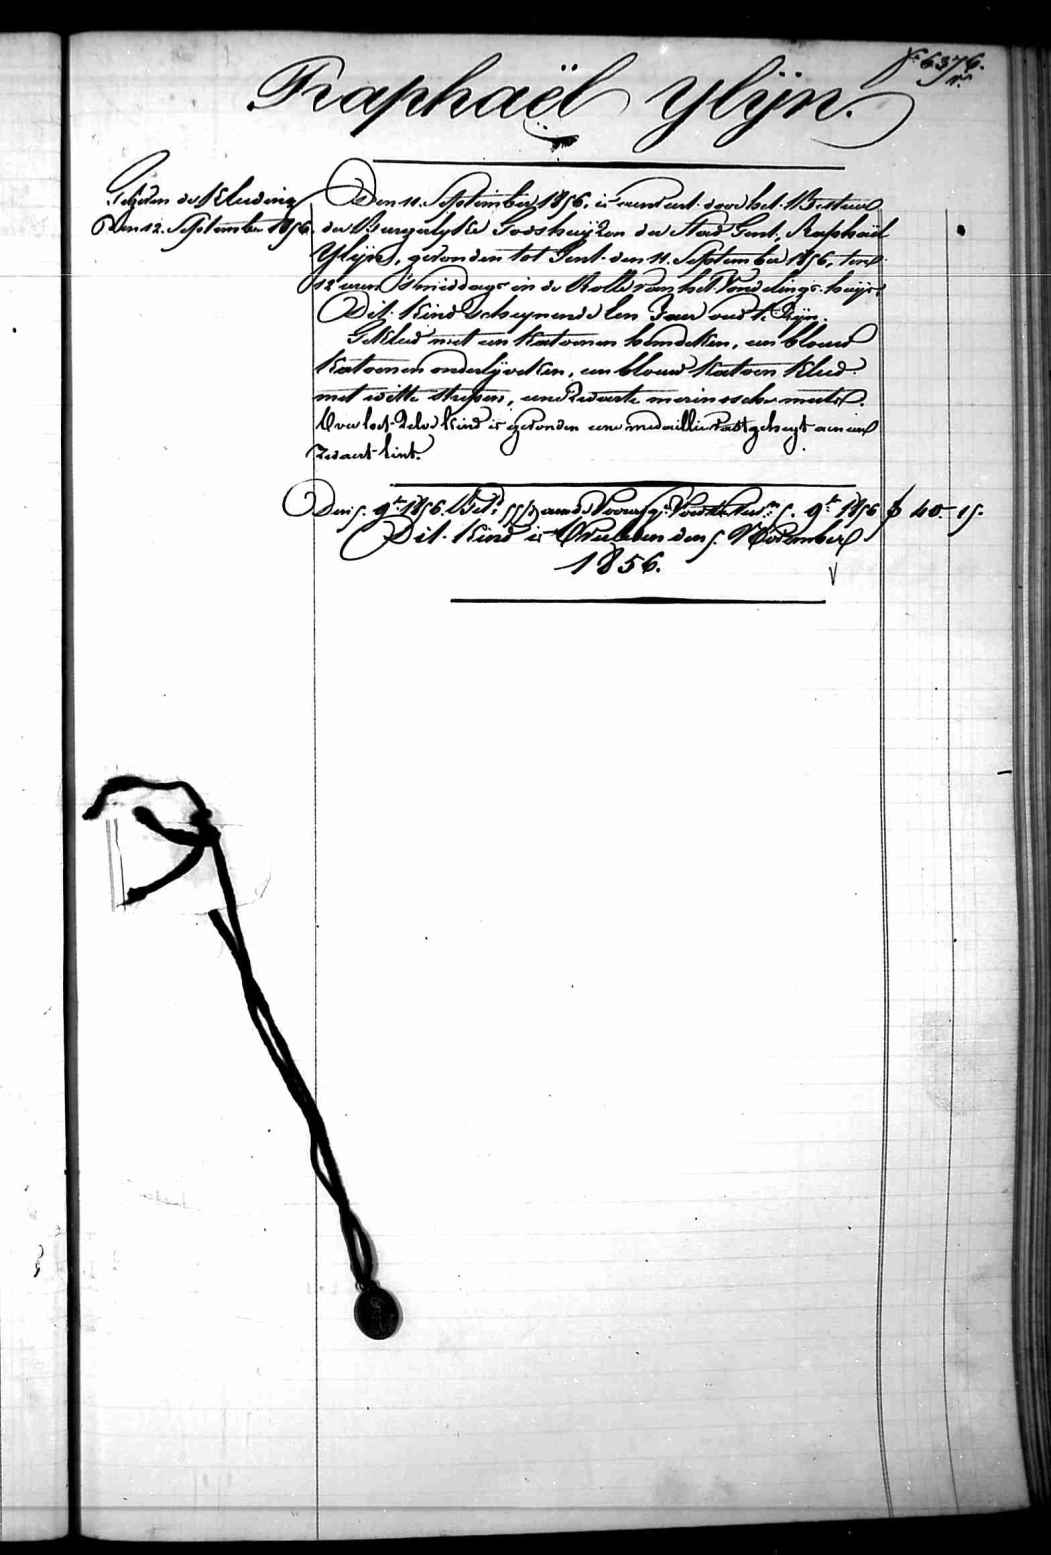 F.º 6376.
r.º
Raphaël Ylijn.
Gegeven de Kleeding
Den 12. September 1856.
Den 11. September 1856, is aenveert door het Bestuur
der Burgerlyke Godshuyzen der Stad Gent, Raphaël
Ylijn, gevonden tot Gent den 11. September 1856, ten
12 uren 's middags in de Rolle van het Vondelings-huys.
Dit Kind scheynende een Jaer oud te Zijn.
Gekleed met een Katoenen hemdeken, een blauw
Katoenen onderlijveken, een blauw Katoen Kleed
met witte strepen, eene Zwarte merinosche muts.
Over het Zelve Kind is gevonden eene medaillie vastgehegt aen een
Zwart lint.
Den 5. 9.bre 1856. Bet. aende Voorsz. 5. 9.bre 1856 f 40-15.
Dit Kind is Overleden den 5. November
1856.